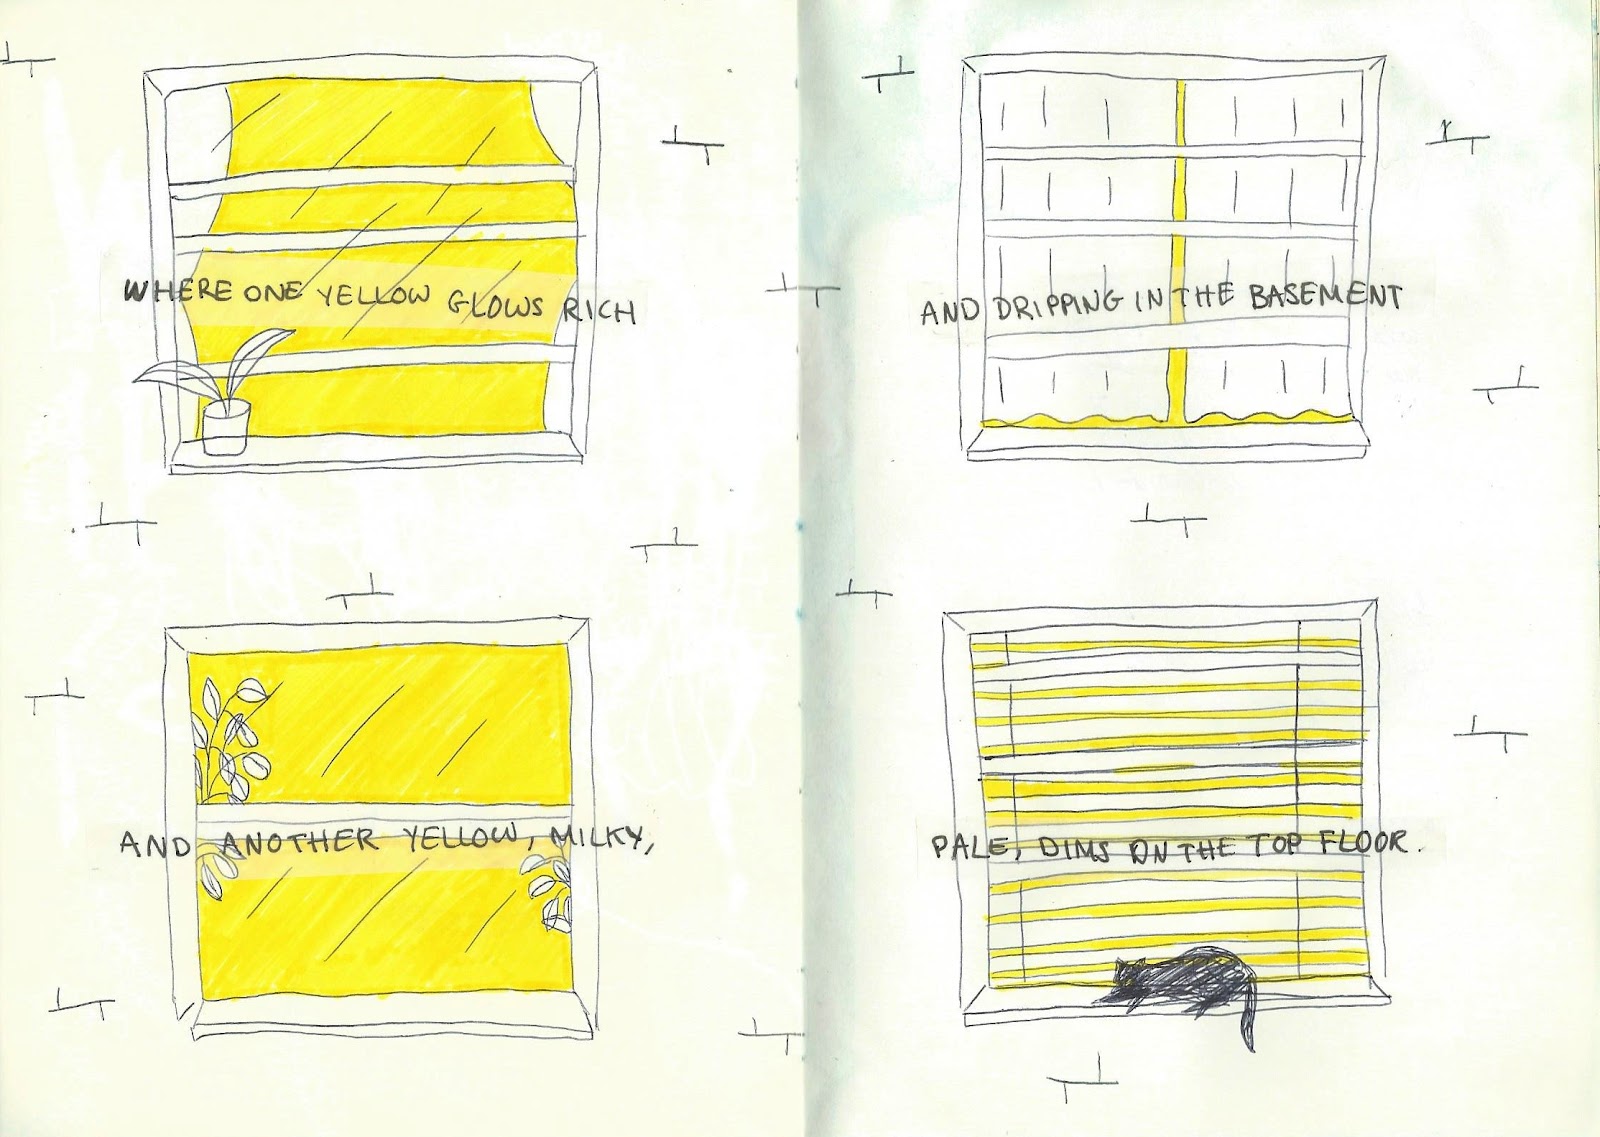 WHERE ONE YELLOW GLOWS RICH
AND DRIPPING IN THE BASEMENT
AND ANOTHER YELLOW, MILKY,
PALE, DIMS ON THE TOP FLOOR.